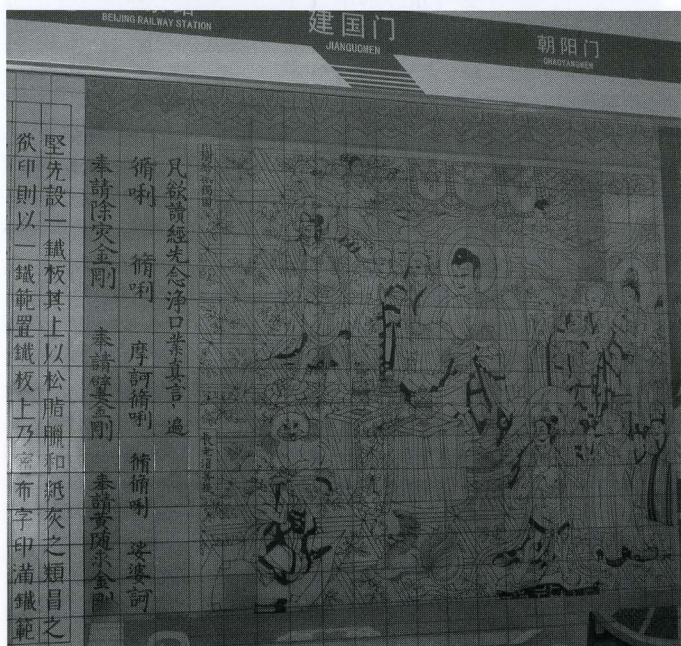 BEIJING RAILWAY STATION
建国门
JIANGUOMEN
朝阳门
CHAOYANGMEN
祇樹給孤獨園
長老須菩提
凡欲讀經先念淨口業真言一遍
脩唎 脩唎 摩訶脩唎 脩脩唎 娑婆訶
奉請除灾金剛 奉請辟毒金剛 奉請黄随求金剛
堅先設一鐵板其上以松脂臘和紙灰之類冒之
欲印則以一鐵範置鐵板上乃密布字印滿鐵範